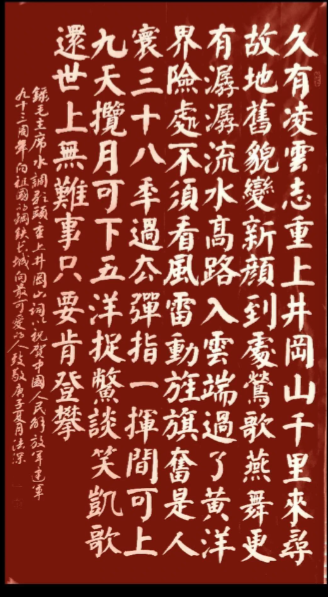 久有凌雲志重上井岡山千里來尋
故地舊貌變新顔到處鶯歌燕舞更
有潺潺流水高路入雲端過了黃洋
界險處不須看風雷動旌旗奮是人
寰三十八秊過去彈指一揮間可上
九天攬月可下五洋捉鱉談笑凱歌
還世上無難事只要肯登攀
錄毛主席水調歌頭重上井岡山詞以祝賀中國人民解放軍建軍
九十三周年向祖國鋼鐵長城向最可愛的人致敬庚子夏月法深